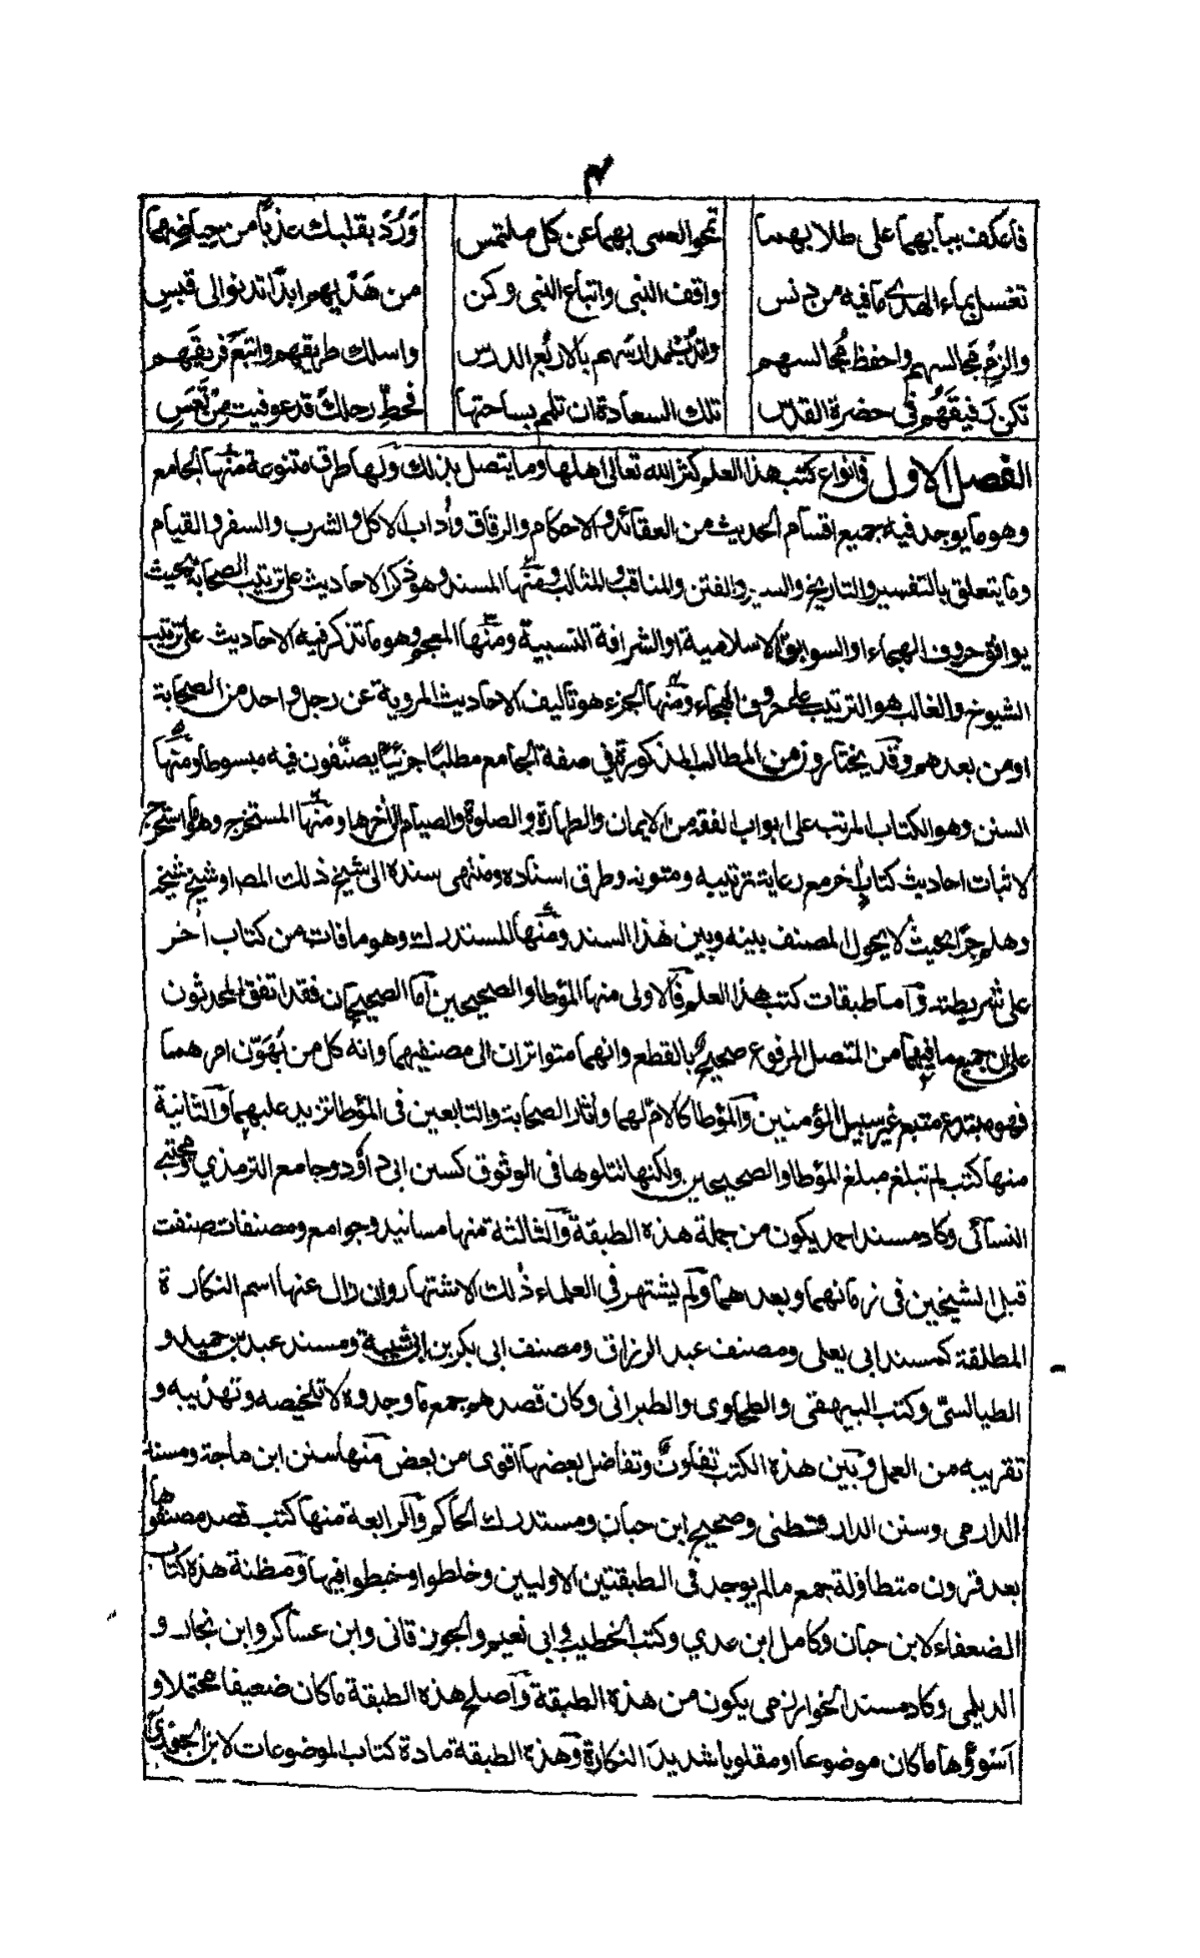 ٣
فاعكف ببابهما على طلابهما تمحو العمى بهما عن كل ملتمس وَرُدَّ بقلبك عذبًا من حِياضِهما
تغسل بماء الهدى ما فيه من دنس واقف النبى واتباع النبى وكن من هَدْيِهم ابدًا تدنو الى قبسِ
والزم مجالسهم واحفظ مجالسهم واندب مدارسهم بالاربُعِ الدرس واسلك طريقهم واتبع فريقهم
تكن رفيقهم فى حضرة القدس تلك السعادة ان تلمم بساحتها فحطّ رحلك قد عوفيت من تَعَسِ
الفصل الاول فى انواع كتب هذا العلم كثر الله تعالى اهلها وما يتصل بذلك ولها طرق متنوعة منها الجامع
وهو ما يوجد فيه جميع اقسام الحديث من العقائد والاحكام والرقاق وأداب الاكل والشرب والسفر والقيام
وما يتعلق بالتفسير والتاريخ والسير والفتن والمناقب والمثالب ومنها المسند وهو ذكر الاحاديث على ترتيب الصحابة بحيث
يوافق حروف الهجاء او السوابق الاسلامية او الشرافة النسبية ومنها المعجم وهو ما تذكر فيه الاحاديث على ترتيب
الشيوخ والغالب هو الترتيب على حروف الهجاء ومنها الجزء هو تاليف الاحاديث المروية عن رجل واحد من الصحابة
او من بعدهم وقد يختارون من المطالب المذكورة فى صفة الجامع مطلبًا جزئيًا يصنّفون فيه مبسوطا ومنها
السنن وهو الكتاب المرتب على ابواب الفقه من الايمان والطهارة والصلوة والصيام الى أخرها ومنها المستخرج وهو ما استخرج
لاثبات احاديث كتاب أخر مع رعاية ترتيبه ومتونه وطرق اسناده ومنتهى سنده الى شيخ ذلك المصـ او شيخ شيخه
وهلم جرًا بحيث لا يحول المصنف بينه وبين هذا السند ومنها المستدرك وهو ما فات من كتاب أخر
على شريطته وآما طبقات كتب هذا العلم فالاولى منها المؤطا والصحيحين آما الصحيحان فقد اتفق المحدثون
على ان جميع ما فيهما من المتصل المرفوع صحيح بالقطع وانهما متواتران الى مصنفيهما وانه كل من يُهَوّن امرهما
فهو مبتدع متبع غير سبيل المؤمنين والمؤطا كالامّ لهما وأثار الصحابة والتابعين فى المؤطا تزيد عليهما والثانية
منها كتب لم تبلغ مبلغ المؤطا والصحيحين ولكنها تتلوها فى الوثوق كسنن ابى داؤد وجامع الترمذي ومجتبى
النسائى وكاد مسند احمد يكون من جملة هذه الطبقة والثالثة منها مسانيد وجوامع ومصنفات صنفت
قبل الشيخين فى زمانهما وبعدهما ولم يشتهر فى العلماء ذلك الاشتهار وان زال عنها اسم النكارة
المطلقة كمسند ابى يعلى ومصنف عبد الرزاق ومصنف ابى بكر بن ابى شيبة ومسند عبد بن حميد و
الطيالسى وكتب البيهقى والطحاوى والطبرانى وكان قصدهم جمع ما وجدوه لا تلخيصه وتهذيبه و
تقريبه من العمل وبين هذه الكتب تفاوت وتفاضل بعضها اقوى من بعض منها سنن ابن ماجة ومسند
الدارمى وسنن الدارقطنى وصحيح ابن حبان ومستدرك الحاكم والرابعة منها كتب قصد مصنفوها
بعد قرون متطاولة جمع مالم يوجد فى الطبقتين الاوليين وخلطوا وخبطوا فيها ومظنة هذه كتاب
الضعفاء لابن حبان وكامل ابن عدي وكتب الخطيب وابى نعيم والجوزقانى وابن عساكر وابن نجار و
الديلمى وكاد مسند الخوارزمى يكون من هذه الطبقة وآصلح هذه الطبقة ما كان ضعيفا محتملا و
آسوؤها ما كان موضوعا او مقلوبا شديد النكارة وهذه الطبقة مادة كتاب الموضوعات لابن الجوزي